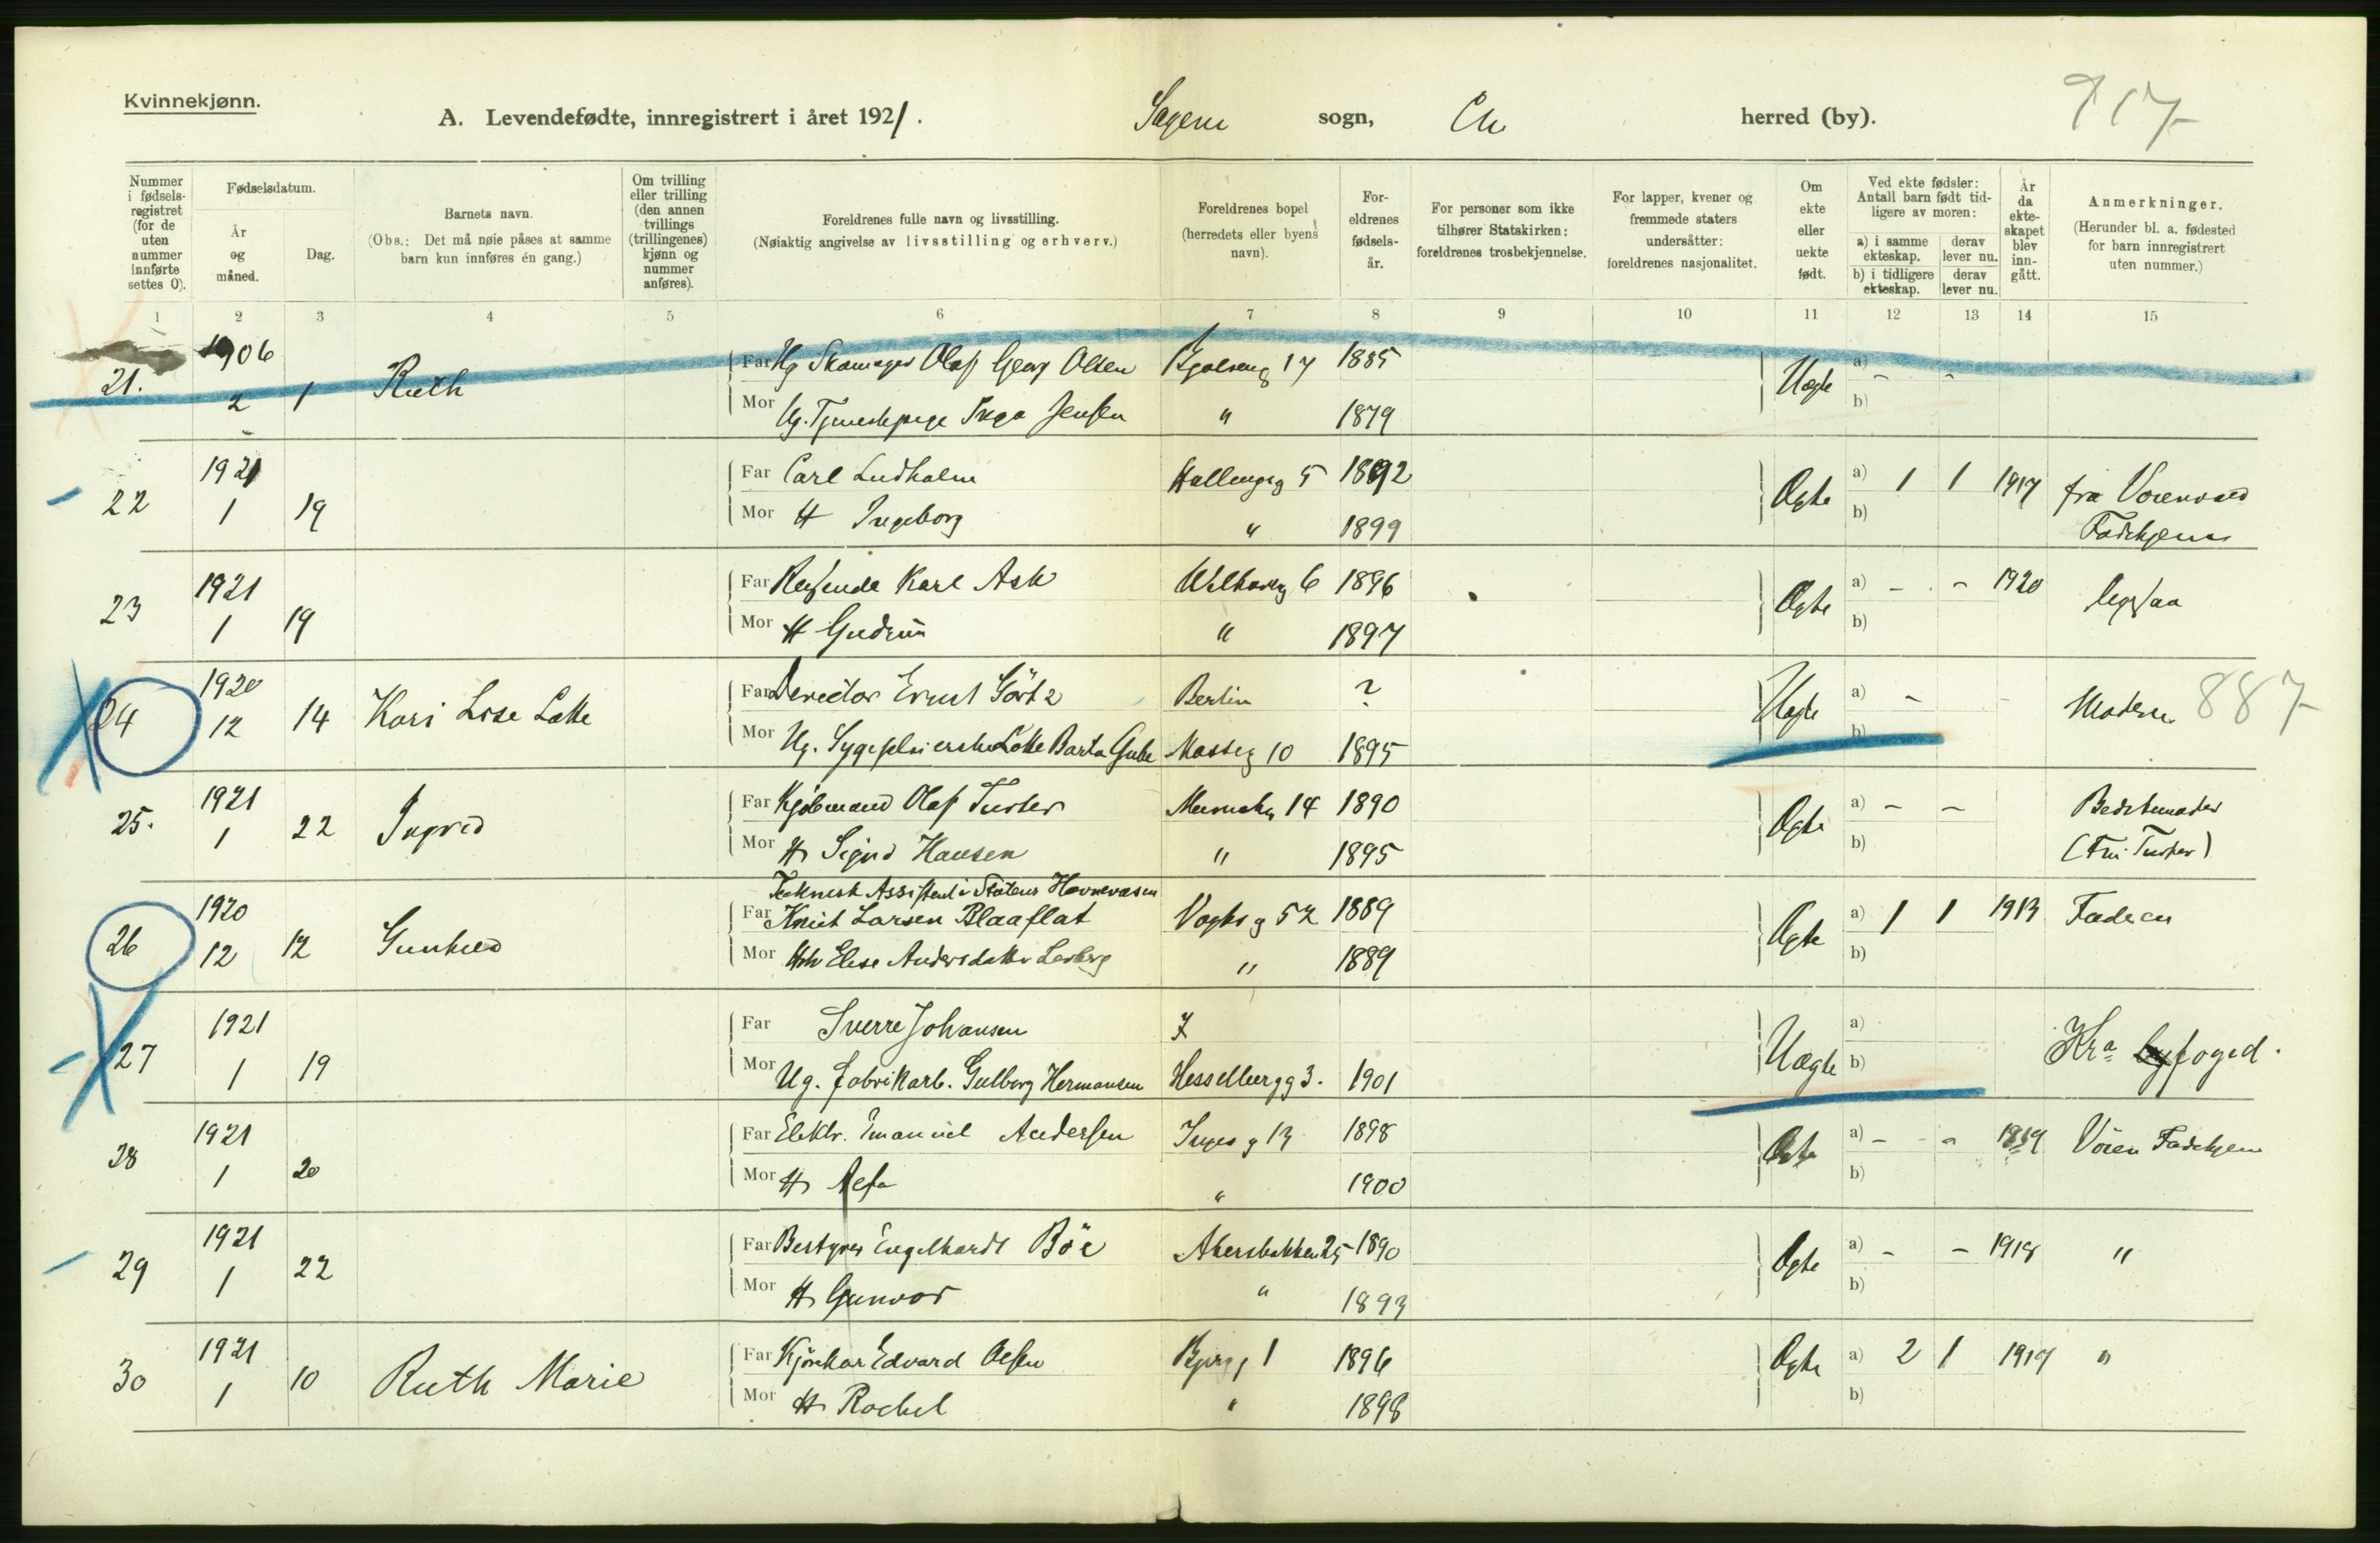 Kvinnekjønn.
A. Levendefødte, innregistrert i året 1921. Sagene sogn, Ch. herred (by). 917
Nummer i fødselsregistret (for de uten nummer innførte settes 0).
Fødselsdatum.
År og måned.
Dag.
Barnets navn.
(Obs.: Det må nøie påses at samme barn kun innføres én gang.)
Om tvilling eller trilling (den annen tvillings (trillingenes) kjønn og nummer anføres).
Foreldrenes fulle navn og livsstilling.
(Nøiaktig angivelse av livsstilling og erhverv.)
Foreldrenes bopel (herredets eller byens navn).
Foreldrenes fødselsår.
For personer som ikke tilhører Statskirken: foreldrenes trosbekjennelse.
For lapper, kvener og fremmede staters undersåtter: foreldrenes nasjonalitet.
Om ekte eller uekte født.
Ved ekte fødsler: Antall barn født tidligere av moren:
a) i samme ekteskap. derav lever nu.
b) i tidligere ekteskap. derav lever nu.
År da ekteskapet blev inngått.
Anmerkninger.
(Herunder bl. a. fødested for barn innregistrert uten nummer.)
1 2 3 4 5 6 7 8 9 10 11 12 13 14 15
21. 1906 2 1 Ruth Far Ug Skomager Olaf Georg Olsen 17 1885 Uægte a) - -
Mor Ug. Tjenestepige Inga Jensen " 1879 b)
22 1921 1 19 Far Carl Lindholm 5 1892 Ægte a) 1 1 1917 fra
Mor H Ingeborg " 1899 b) Fødehjem
23 1921 1 19 Far Reisende Karl Ask 6 1896 Ægte a) - - 1920
Mor H Gudrun " 1897 b)
24 1920 12 14 Kari Lise Lotte Far Director Ernst Görtz Berlin ? Uægte a) - - Moderen 887
Mor Ug. Sygepleierske Lotte Barta Gube Mosseg 10 1895 b)
25. 1921 1 22 Ingrid Far Kjøbmand Olaf 14 1890 Ægte a) - - Bedstemoder
Mor H Sigrid Hansen " 1895 b)
26 1920 12 12 Gunhild Teknisk Assistent i Statens Havnevæsen
Far Knut Larsen Blaaflat Vogtsg 52 1889 Ægte a) 1 1 1913 Faderen
Mor Elise Andersdatter " 1889 b)
27 1921 1 19 Far Sverre Johansen ? Uægte a) Kra byfoged.
Mor Ug. fabrikarb. Gulborg Hermansen Hesselbergg 3. 1901 b)
28 1921 1 20 Far Elektr. Emanuel Andersen 13 1898 Ægte a) - - 1919 Vøien Fødehjem
Mor H " 1900 b)
29 1921 1 22 Far Bestyrer Engelhardt Böe Akersbakken 25 1890 Ægte a) - - 1918 "
Mor H Gunvor " 1893 b)
30 1921 1 10 Ruth Marie Far Kjørekar Edvard Olsen 1 1896 Ægte a) 2 1 1917 "
Mor H Rachel " 1898 b)